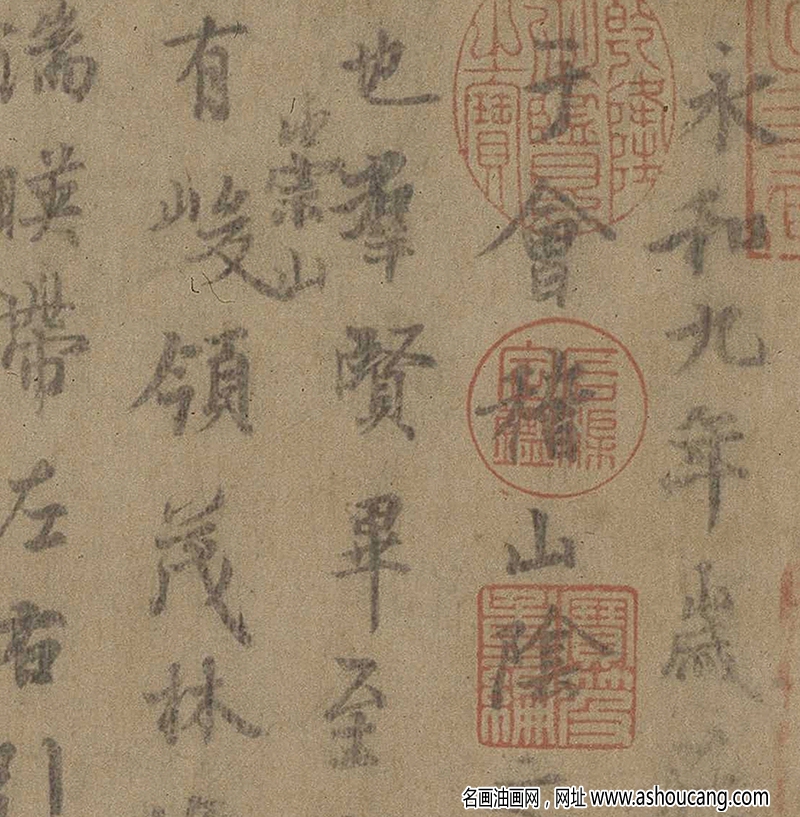 永和九年歲
于會稽山陰
也羣賢畢至
崇山
有峻領茂林
湍暎帶左右引
乾隆御覽之寶
石渠寶鑑
名画油画网，网址 www.ashoucang.com